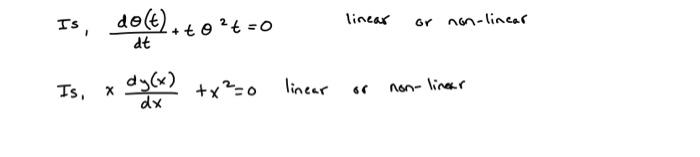 Is, dθ(t)/dt + t θ²t = 0 linear or non-linear
Is, x dy(x)/dx + x² = 0 linear or non-linear